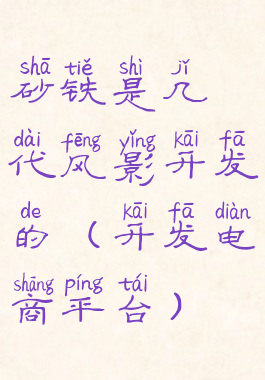 shā tiě shì jǐ
砂铁是几
dài fēng yǐng kāi fā
代风影开发
de kāi fā diàn
的（开发电
shāng píng tái
商平台）